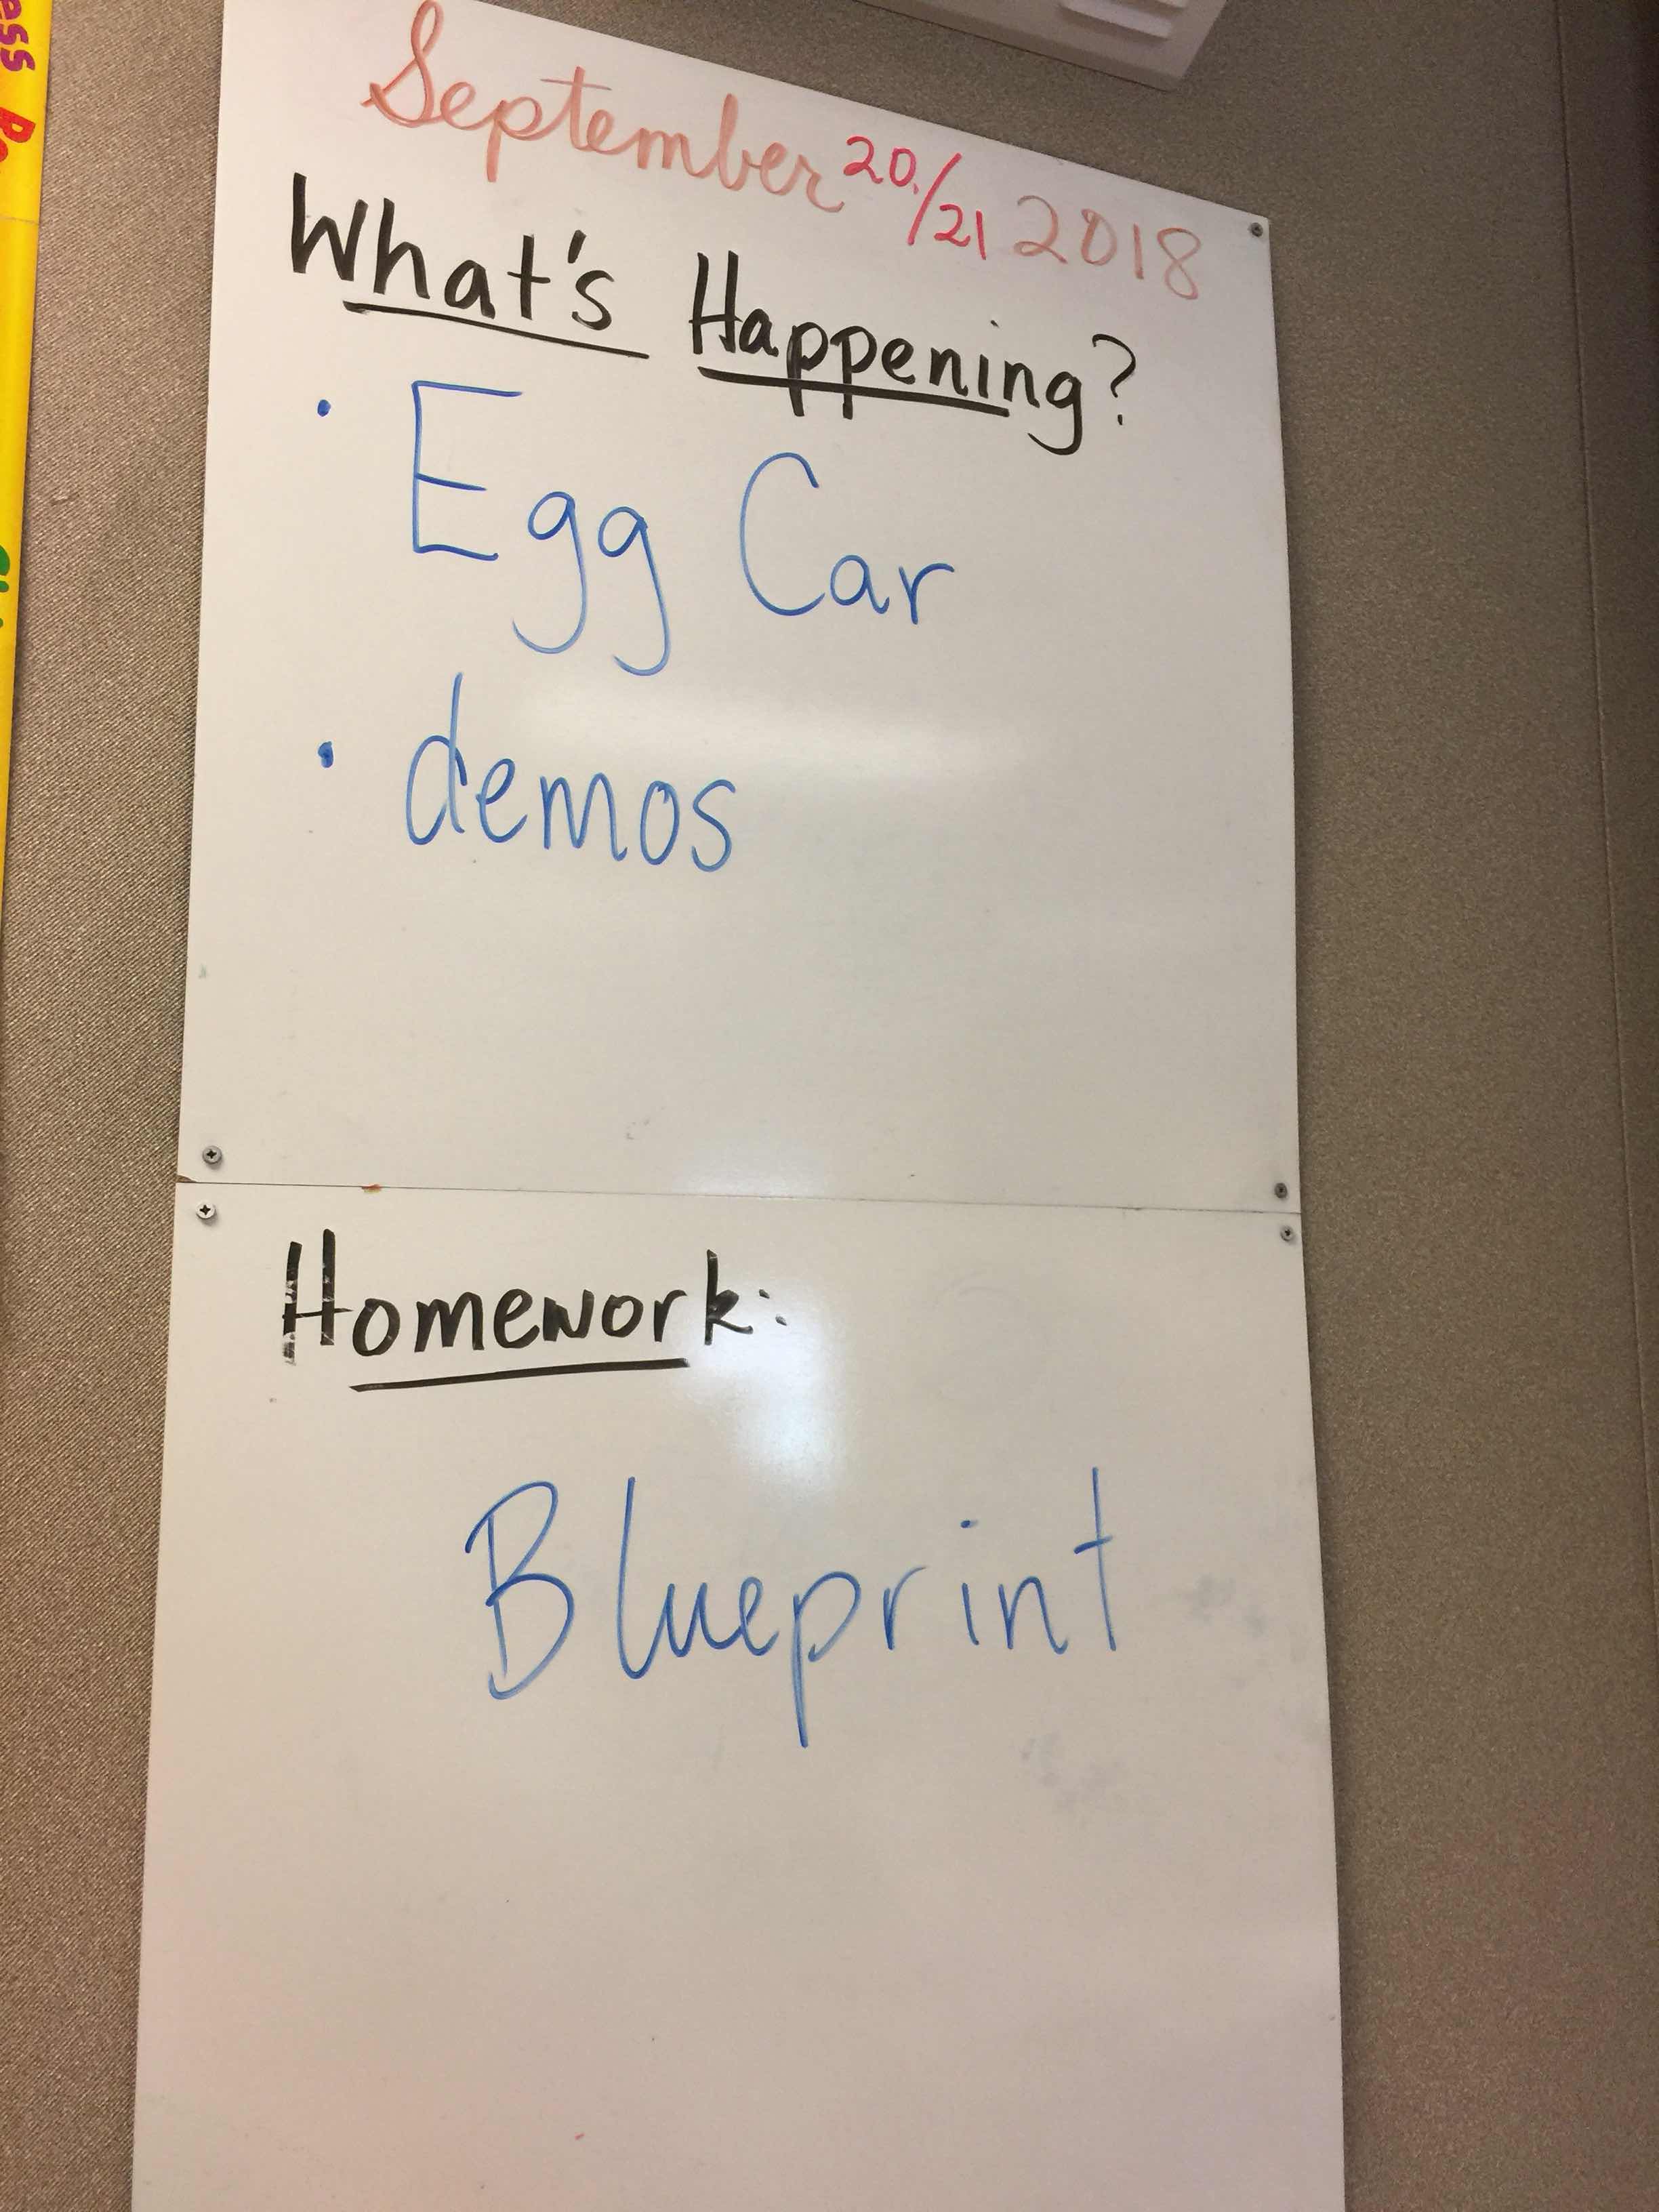 ess
September 20/21 2018
What's Happening?
• Egg Car
• demos
Homework:
Blueprint